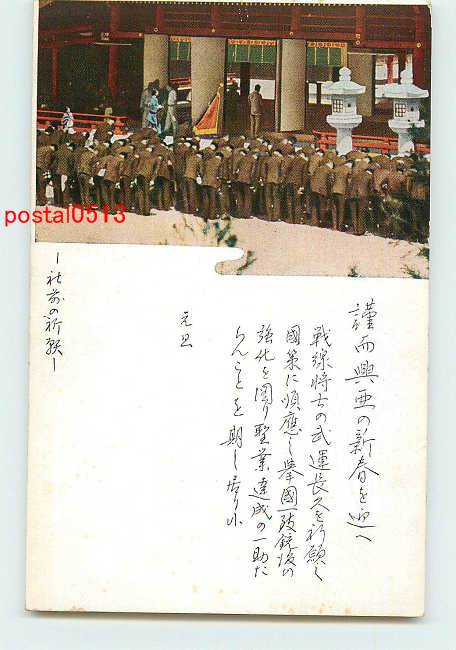 謹而興亜の新春を迎へ
戦線将士の武運長久を祈願し
國策に順應し挙國一致銃後の
強化を図り聖業達成の一助た
らんことを期し居り
元旦
―社前の祈願―
postal0513